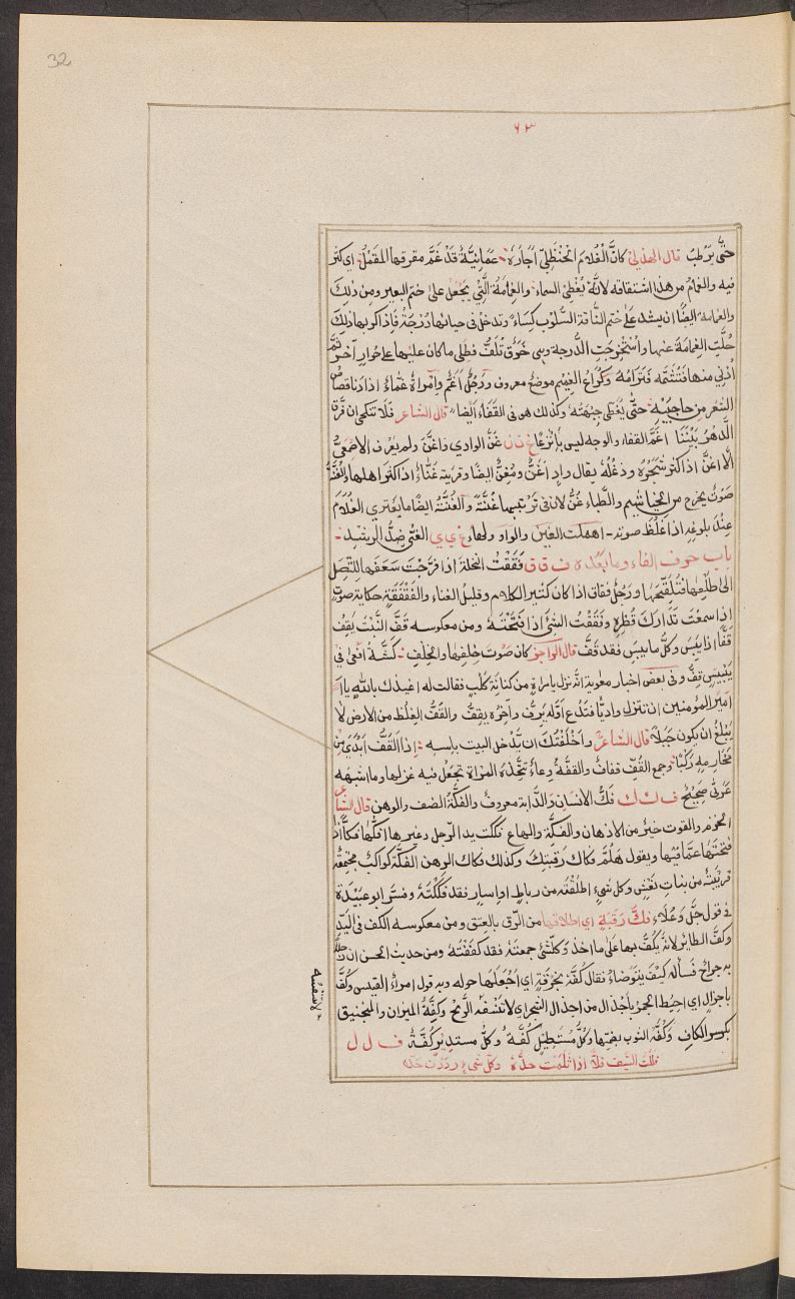 32
٦٣
حتى يرطب قال الهذلي كأنَّ الْغُلامَ الحَنْظَلِيّ أَجَارَهُ عَمَانِيَّةٌ قَدْ غَمَّ مفرقها القَمْلُ اى كثر
فيه والغمام من هذا اشتقاقه لانّه يُغطى السماء والغِمامة الّتِي يجعل على ختم البعير ومن ذلك
والغمامة ايضًا ان يشد على ختم النّاقة السَّلُوب كِسَاءٌ وتدخل فى حيائها دُرْجَةٌ فإذا كوبها ذلك
حُلَّتِ الغِمامَةُ عنها واسْتُخْرِجَتِ الدّرجة وهى خَرَقٌ تُلَفُّ فطلى ما كان عليها على حُوارٍ آخر ثمَّ
أُدْنِيَ منها فَتَشُمّه فَتَرْأَمُهُ وكُراعُ الغَمِيْم موضعٌ معروف ورَجُلٌ أَغَمُّ وامرأةٌ غَمّاءُ اذا دنا قصاص
الشعر من حاجبَيْهِ حتّى يُغَطِّى جبهَتَهُ وكذلك هو فى القَفَاءِ ايضا قال الشاعر فلا تنكحى ان فرَّق
الدَّهْرُ بَيْنَنا اغمَّ القفاء والوجه ليس بأنْزعا غ ن ن غَنَّ الوادي واغَنَّ ولم يعرف الاصمعيُّ
إلّا اغنَّ اذا كثر شجَرُه ودغَلُهُ يقال وادٍ أغَنُّ ومُغِنٌّ ايضا وقرية غنّاءُ اذا كثر اهلها والغُنَّةُ
صَوْتٌ يخرج من الخياشيم والظباء غُنٌّ لان فى نزيبها غُنَّةً والغُنَّةُ ايضًا ما يعترى الغلام
عِنْدَ بلوغه اذا غلُظَ صوته اهملت الغين والواو والهاء غ ي ي الغَىُّ ضِدُّ الرشد
باب حرف الفاء وما بعده ف ق ق فَقَقْتُ النخلة اذا فرَّجْتَ سَعَفَها لِتَصِلَ
الى طَلْعِها فتُلَقِّحَهَا ورَجُلٌ فقاق اذا كان كثير الكلام وقليلُ الغناء والفَقْفَقَة حكاية صوت
اذا سمعْتَ تَدارُكَ قَطْرِه وفَقَقْتُ الشئ اذا فَتَحْتَهُ ومن معكوسه قَفَّ النَّبْتُ يَقِفُّ
قَفًّا اذا يبس وكلُّ ما يبس فقد قَفَّ قال الراجز كان صوت خِلْفِها والخِلْفِ كَشَّةُ افعَى فى
يَبِيسِ قفٍّ وفى بعض اخبار معوية انّه نزل بامرأةٍ من كنانة كَلْبٍ فقالت له اعيذك بالله يا
امير المؤمنين ان تنزل واديًا فتدع اوّله يرفّ واخره يقفّ والقُفُّ الغلظ من الارض لا
يَبْلُغُ ان يكون جَبَلاً قال الشاعر واخْلَفْتُك ان يدخل البيت باسمه إذا القُفُّ ابْدَى مِنْ
مَخارِمه رَكْبًا وجمع القُفّ قفافٌ والقُفَّةُ وعاءٌ تتّخذه المراة تجعل فيه غزلها وما اشبهه
عربىّ صحيح ف ك ك فَكُّ الانسان والدّابة معروفٌ والفَكَّةُ الضعف والوهن قال الشاعر
الحزم والقوت خيرٌ من الادهان والفَكَّة والهاع فككت يد الرّجل وغيرها افُكُّها فَكًّا اذا
فتحتها عمّا فيها ويقول هَلُمَّ فَكاكَ رَقبتِكَ وكذلك فكاك الرهن الفَكّة كواكب مجتمعة
قريبَةٌ من بناتِ نَعْشٍ وكل شىءٍ اطلقته من رباطٍ او إسارٍ فقد فكَكْتَهُ وفسّر ابو عبيدة
فى قول جلَّ وعَلاَ فَكُّ رَقَبَةٍ اى اطلاقها من الرّق بالعتق ومن معكوسه الكف فى اليد
وكفُّ الطائر لانه يكُفُّ بها على ما اخذ وكلّ شئ جمعتَهُ فقد كففْتَهُ ومن حديث الحسن ان رجلا
به جراح فسأله كيف يتوضاء فقال كُفَّهُ بخرقةٍ اى اجْعَلها حوله وبه قول امرئُ القيس وكُفَّ
باجزال اى احيط الجمر بأجذال من اجذال الشجر اى لا تنسفه الرّيح وكِفَّةُ الميزان والمنجنيق
بكسر الكاف وكُفَّةُ الثوب بضمّها وكُلُّ مُسْتَطِيلٍ كُفَّةٌ وكُلُّ مستديرٍ كِفَّةٌ ف ل ل
فللت السَّيف فلًّا اذا ثلمت حدَّه وكلُّ شىءٍ رددت حدّه
لا تنسفه